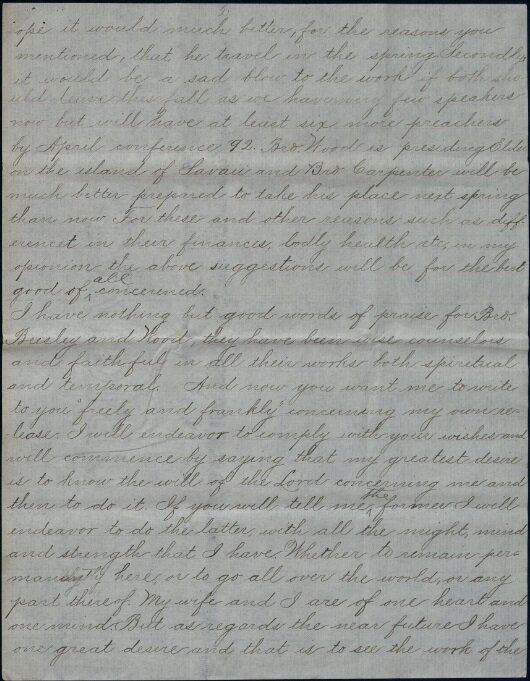 2
ope it would much better, for the reasons you
mentioned, that he travel in the spring. Secondly
it would be a sad blow to the work if both sho
uld leave this fall as we have very few speakers
now but will have at least six more preachers
by April conference 92. Bro Wood is presiding Elder
on the island of Savaii and Bro. Carpenter will be
much better prepared to take his place next spring
than now. For these and other reasons such as diff
erence in their finances, bodly health etc, in my
opionion the above suggestions will be for the best
good of all concerened.
I have nothing but good words of praise for Bro.
Beesley and Wood, they have been wise counselors
and faithful in all their works both spiritual
and temporal. And now you want me to write
to you "freely and frankly" concerning my own re-
lease. I will endeavor to comply with your wishes and
will commence by saying that my greatest desire
is to know the will of the Lord concerning me and
then to do it. If you will tell me the former I will
endeavor to do the latter, with all the might, mind
and strength that I have. Whether to remain per
manently here, or to go all over the world, or any
part thereof. My wife and I are of one heart and
one mind. But as regards the near future I have
one great desire and that is to see the work of the